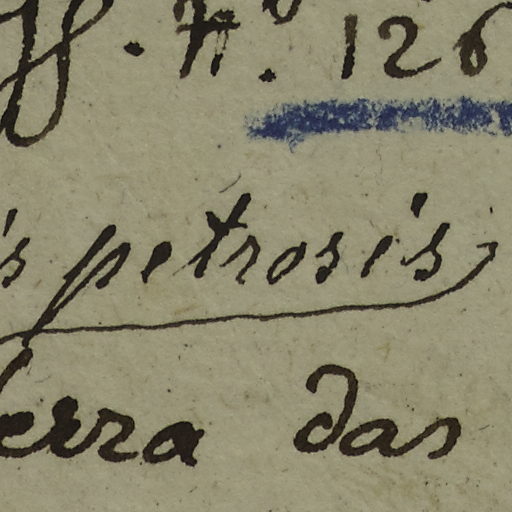 ff. Nº. 126
is petrosis
Serra das